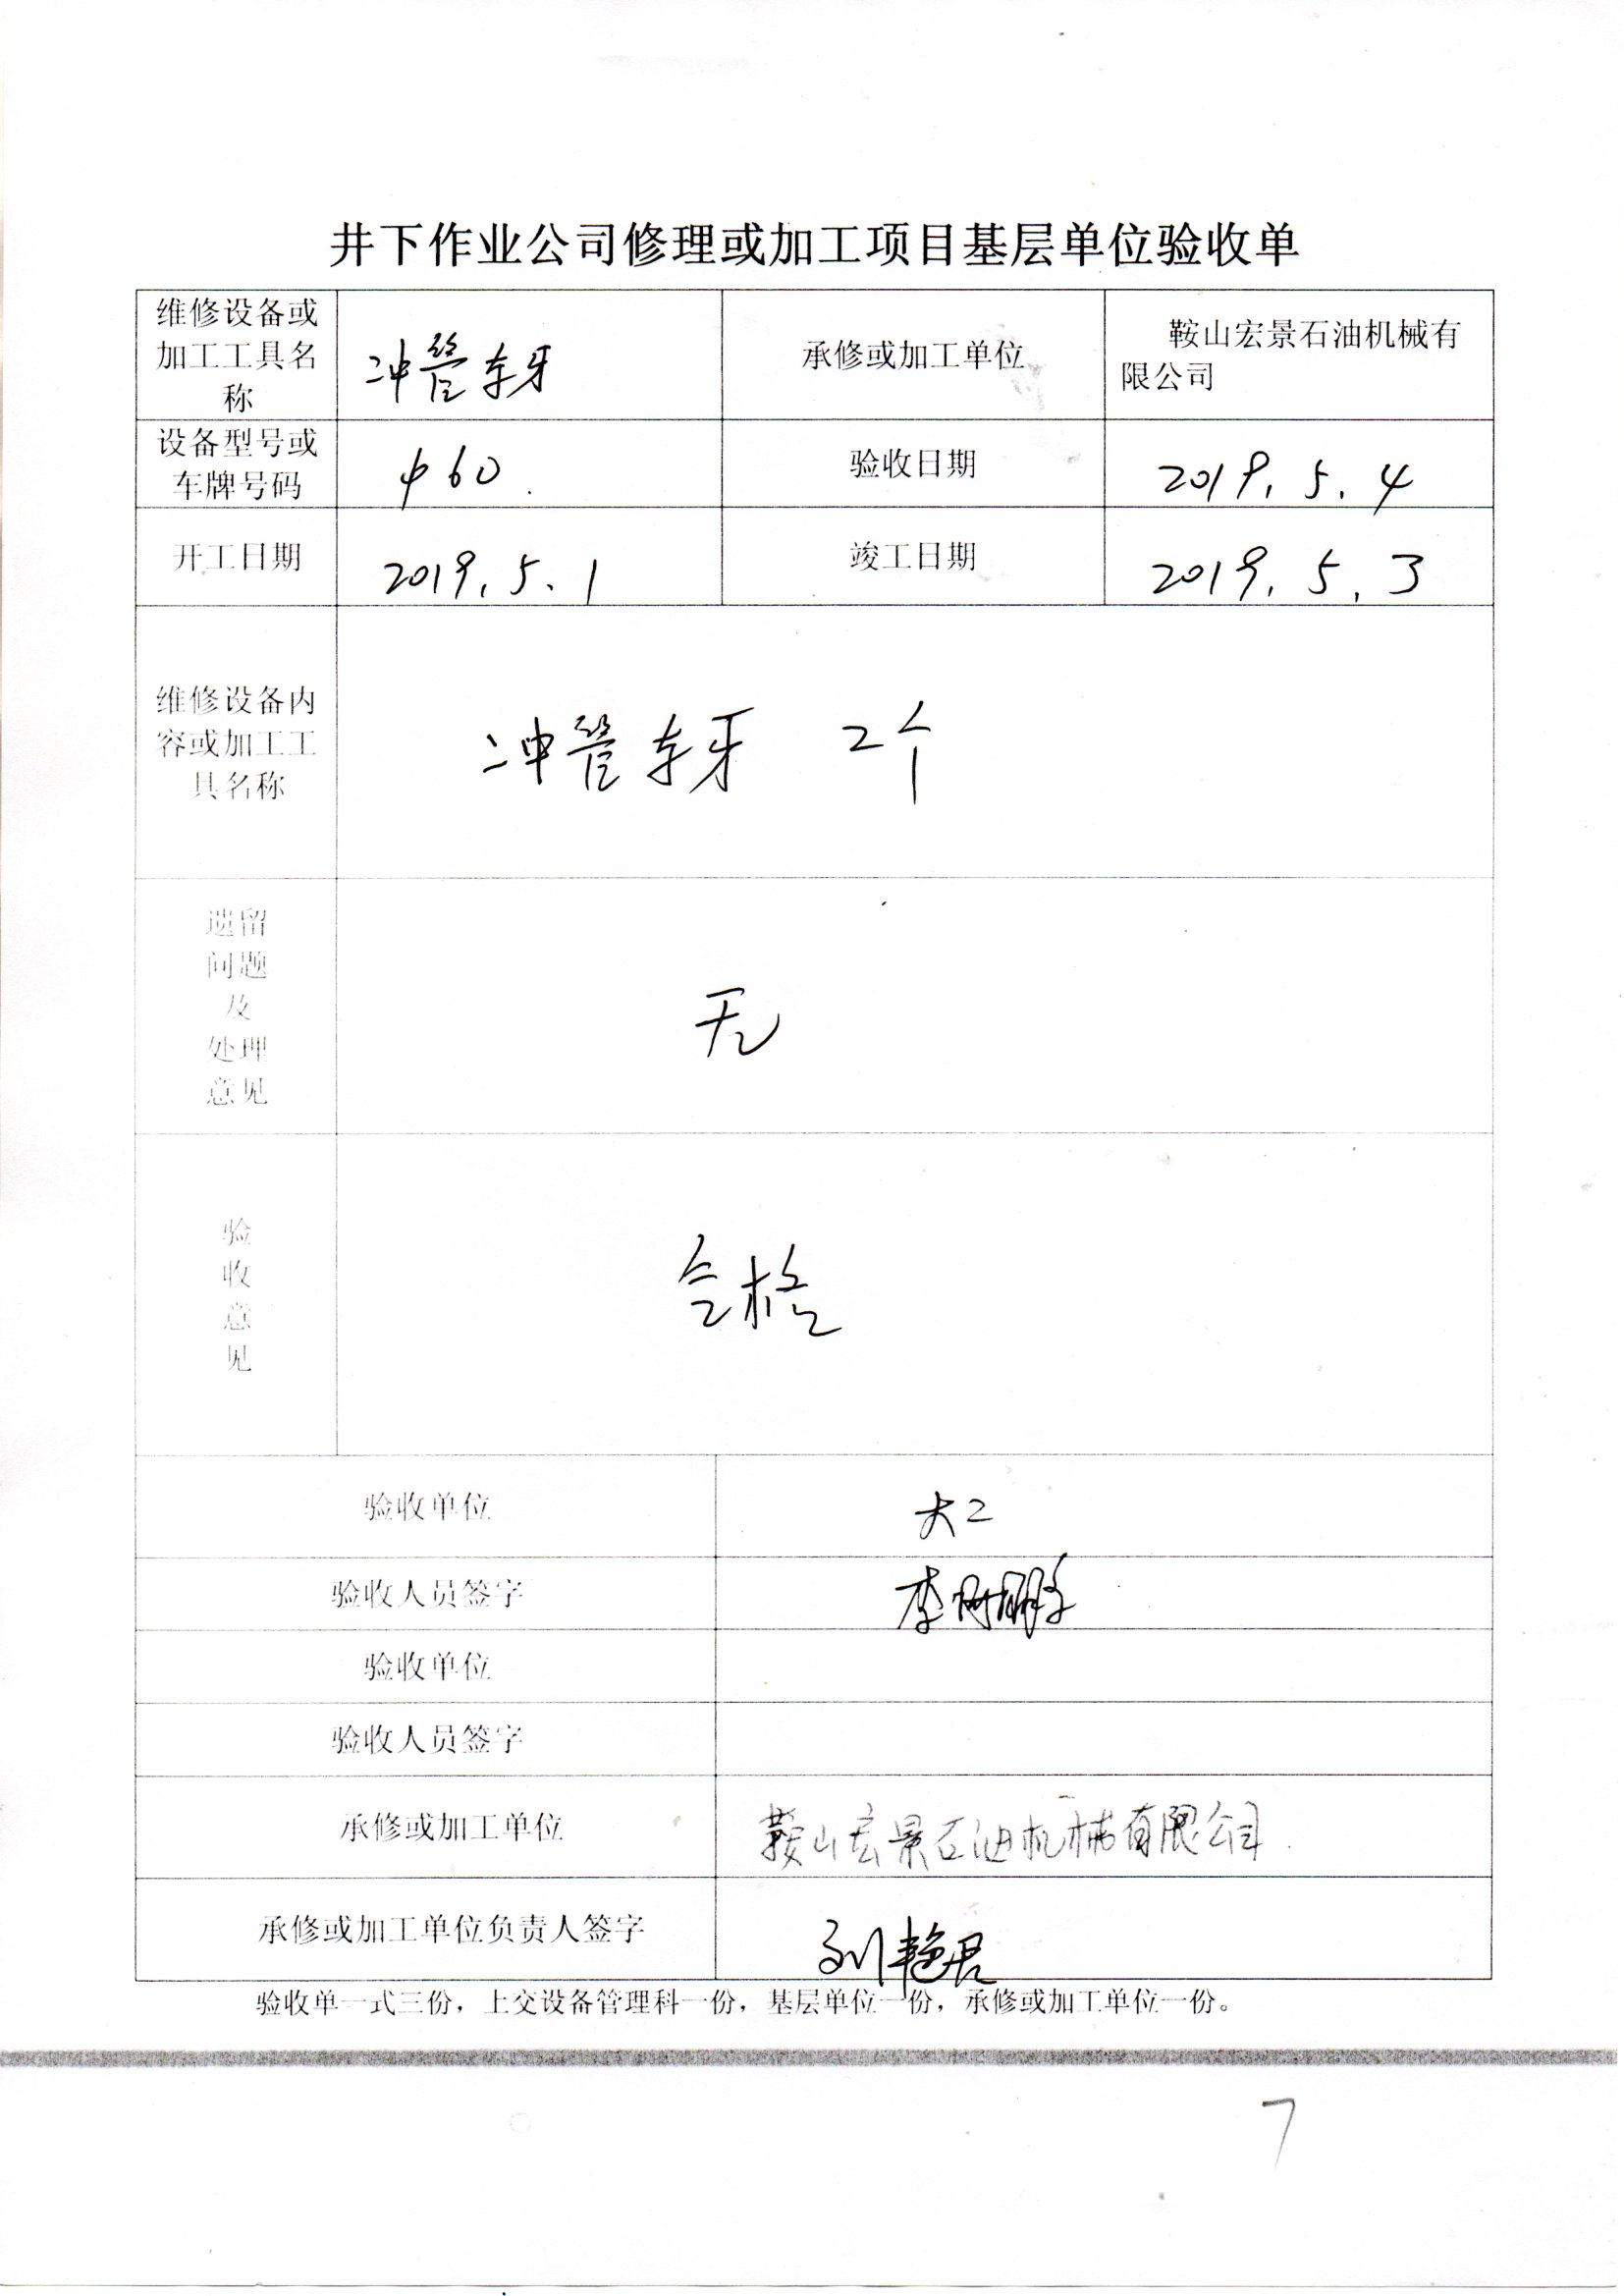 井下作业公司修理或加工项目基层单位验收单
维修设备或
加工工具名
称
冲管车牙
承修或加工单位
鞍山宏景石油机械有
限公司
设备型号或
车牌号码
φ60.
验收日期
2019.5.4
开工日期
2019.5.1
竣工日期
2019.5.3
维修设备内
容或加工工
具名称
冲管车牙 2个
遗留
问题
及
处理
意见
无
验
收
意
见
合格
验收单位
大二
验收人员签字
李树鹏
验收单位
验收人员签字
承修或加工单位
鞍山宏景石油机械有限公司
承修或加工单位负责人签字
刘艳君
验收单一式三份，上交设备管理科一份，基层单位一份，承修或加工单位一份。
7